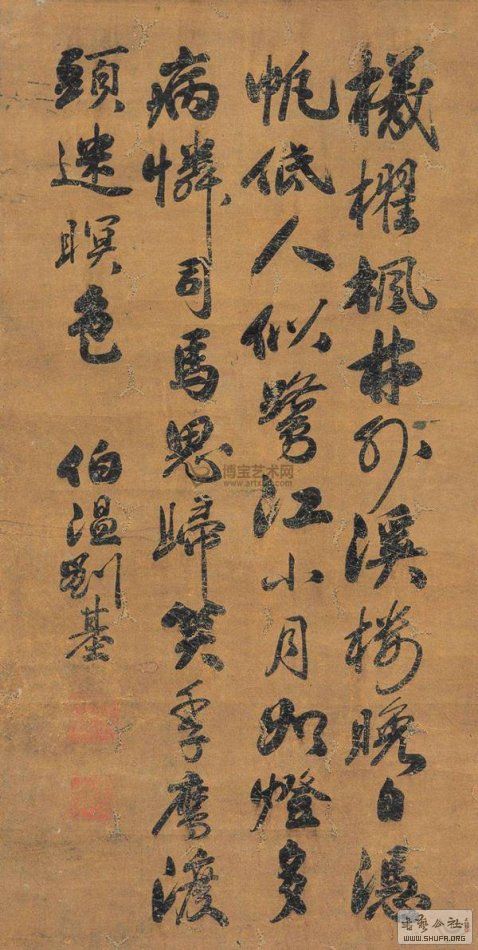 檥櫂楓林外溪樓晚自憑
帆低人似鷺江小月如燈多
病憐司馬思歸笑季鷹渡
頭迷暝色
伯溫劉基
博宝艺术网
书艺公社
WWW.SHUFA.ORG